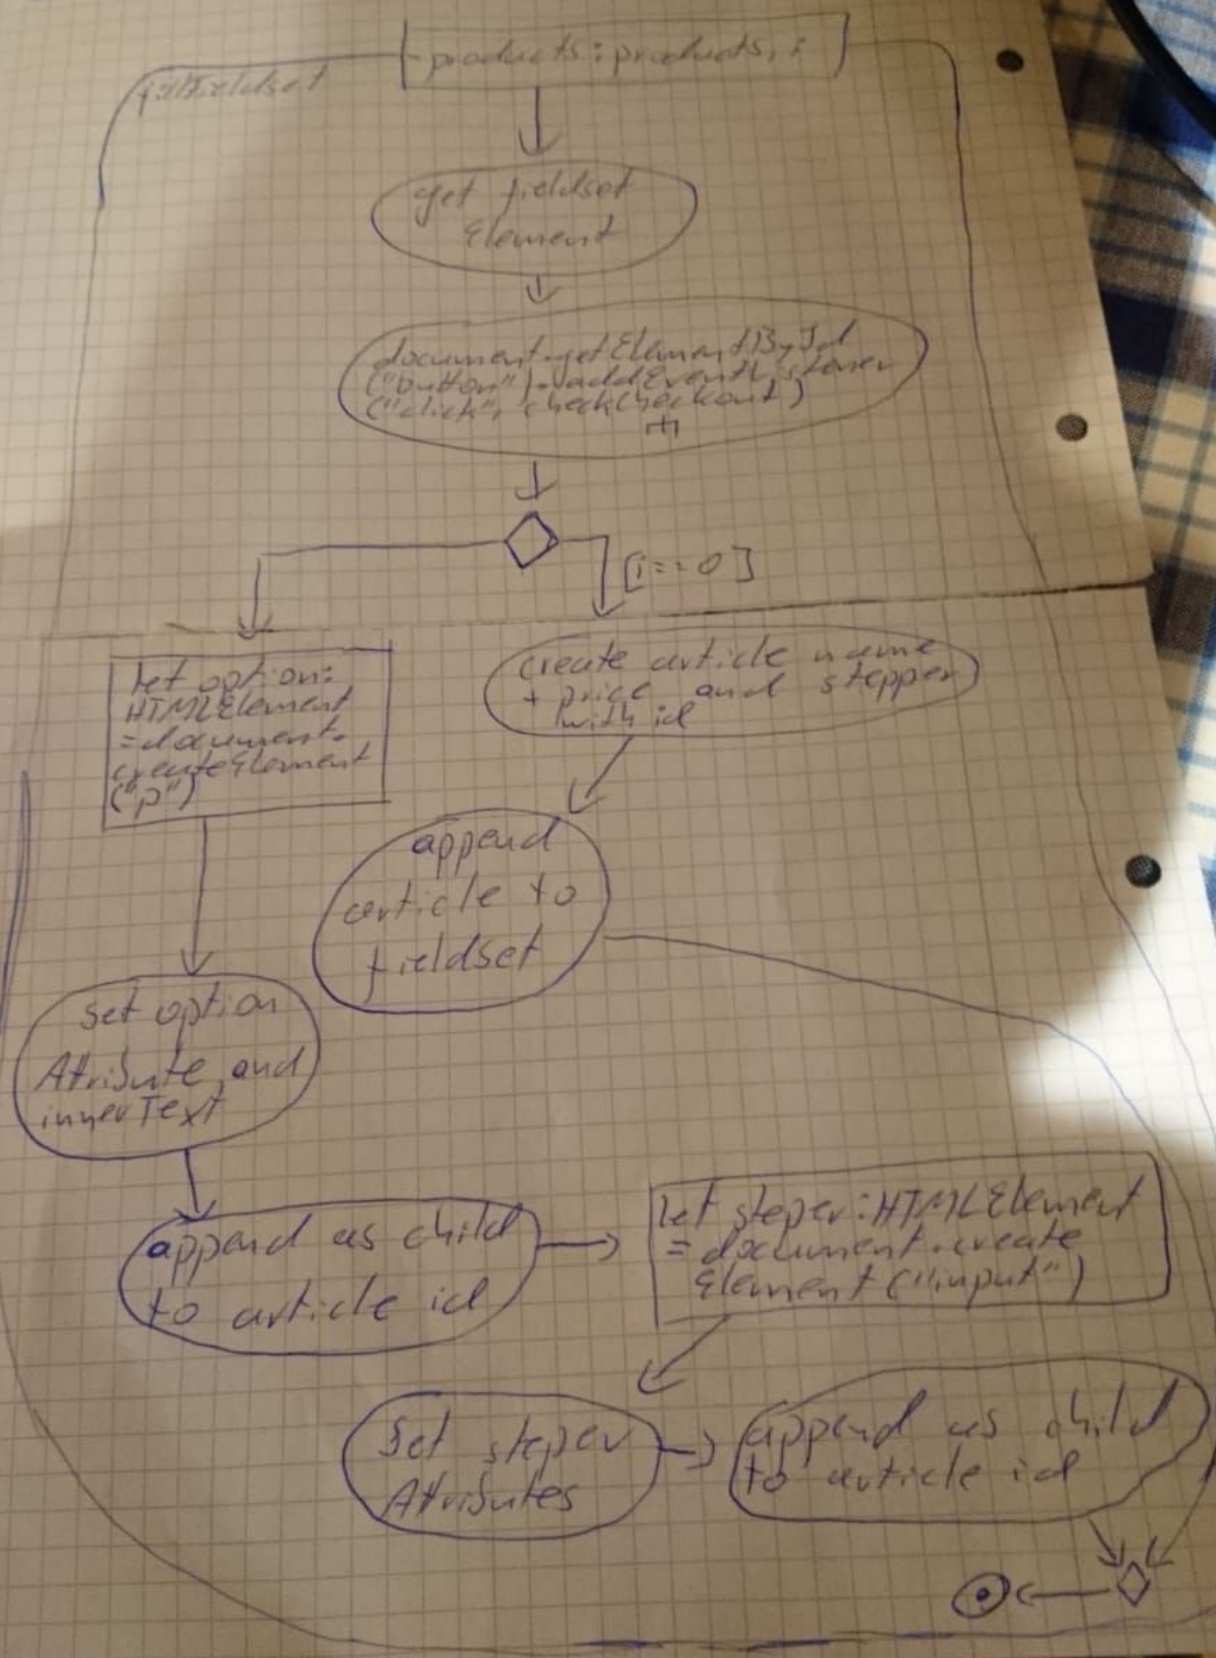 products: products, i
fillFieldset
get fieldset
Element
document.getElementById
("button").addEventListener
("click", checkCheckout)
[i==0]
let option:
HTMLElement
=document.
createElement
("p")
create article name
+ price and stepper
with id
append
article to
fieldset
set option
Atribute and
innerText
append as child
to article id
let steper: HTMLElement
= document.create
Element("input")
Set steper
Atributes
append as child
to article id